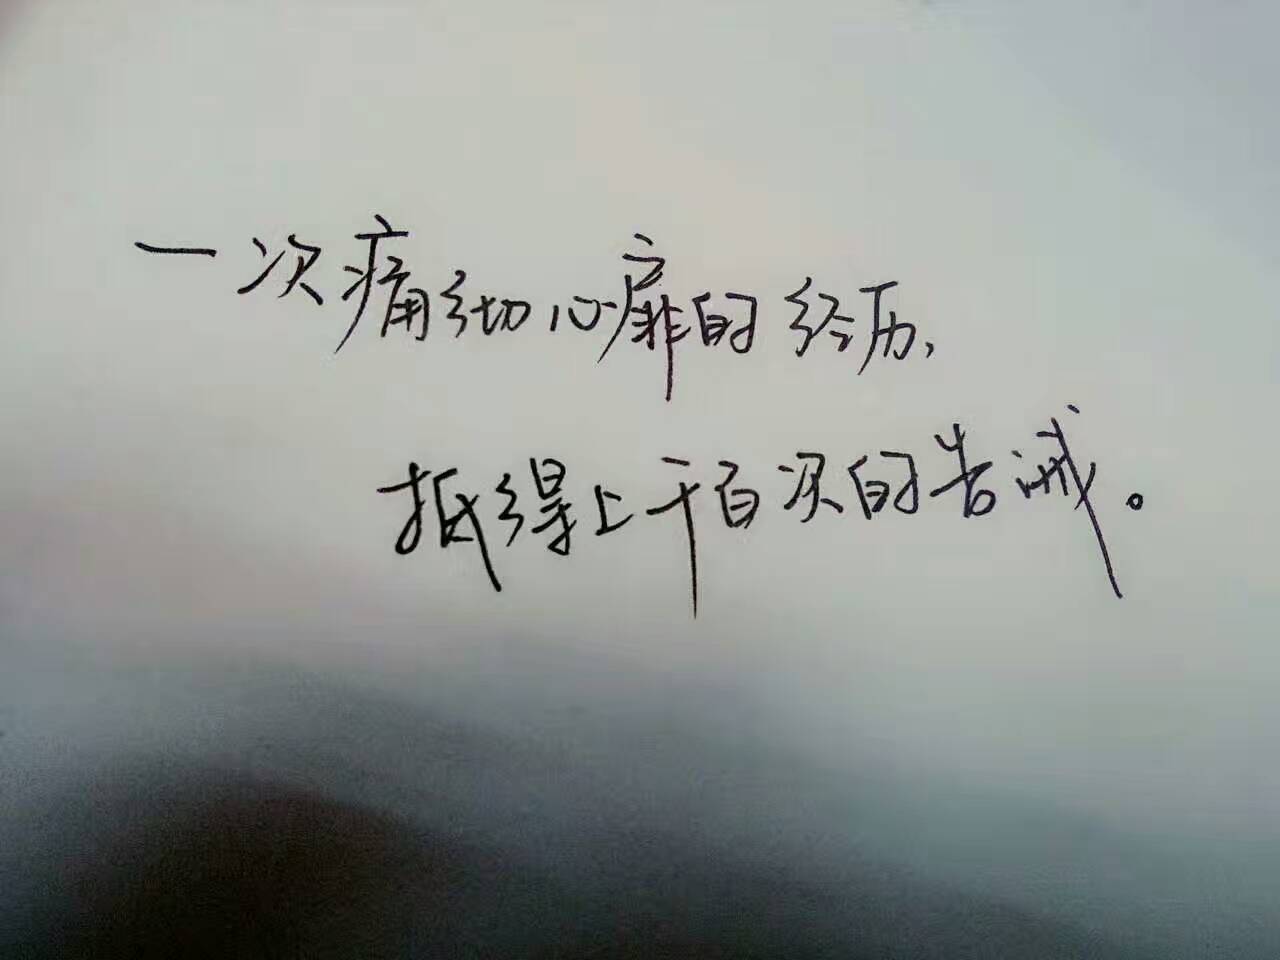 一次痛彻心扉的经历，
抵得上千百次的告诫。